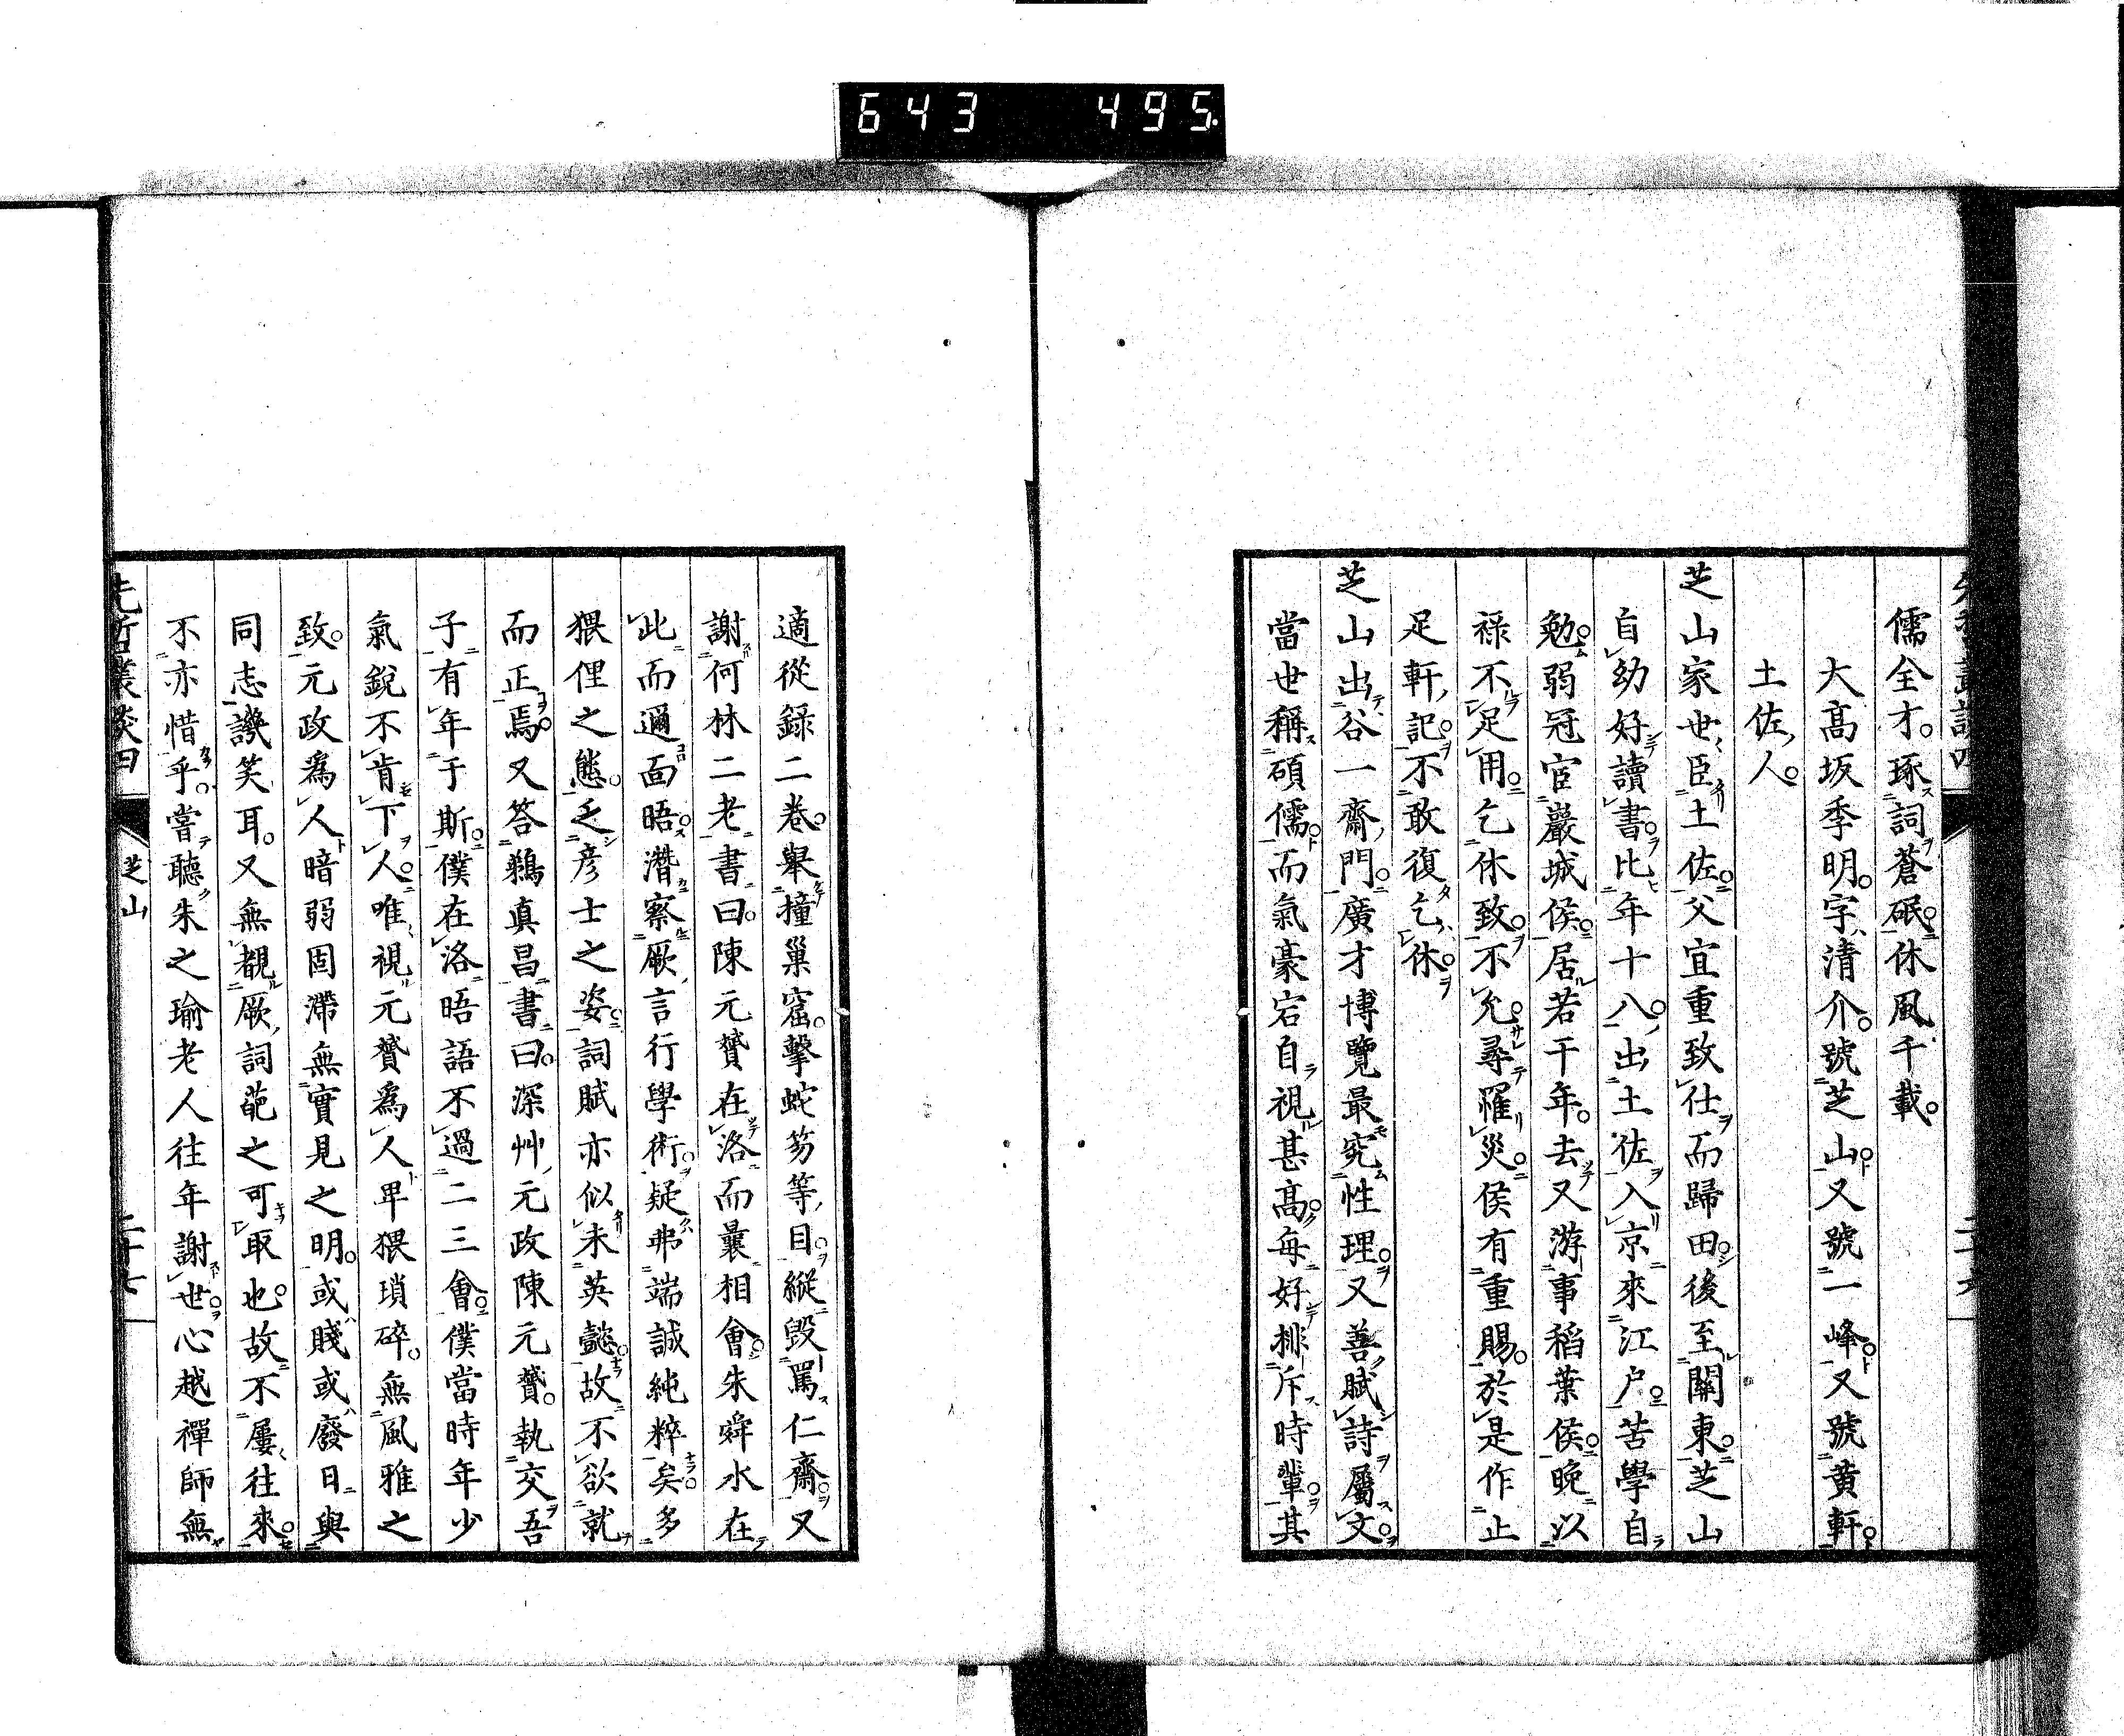 643 495
儒全才。琢詞蒼砥。休風千載。
大高坂季明。字清介。號芝山。又號一峰。又號黄軒。
土佐人。
芝山家世臣土佐。父宜重致仕而歸田。後至關東。芝山
自幼好讀書。比年十八。出土佐入京。來江戸。苦學自
勉。弱冠宦巖城侯。居若干年。去又游事稻葉侯。晩以
祿不足用。乞休致。不允。尋罹災。侯有重賜。於是作止
足軒記。不敢復乞休。
芝山出谷一齋門。廣才博覽最究性理。又善賦詩屬文。
當世稱碩儒。而氣豪宕自視甚高。毎好排斥時輩。其
適從録二卷。舉撞巢窟。擊蛇笏等目。縦毀罵仁齋。又
謝何林二老書曰。陳元贇在洛而曩相會。朱舜水在
此而邇面晤。濳察厥言行學術。疑弗端誠純粹矣。多
猥俚之態。乏彦士之姿。詞賦亦似未英懿。故不欲就
而正焉。又答鵜真昌書曰。深艸元政陳元贇。執交吾
子有年于斯。僕在洛晤語不過二三會。僕當時年少
氣鋭不肯下人。唯視元贇爲人卑猥瑣碎。無風雅之
致。元政爲人暗弱固滯無實見之明。或賤或廢。日與
同志譏笑耳。又無覩厥詞葩之可取也。故不屢往來。
不亦惜乎。嘗聽朱之瑜老人往年謝世。心越禪師無
先哲叢談四
芝山